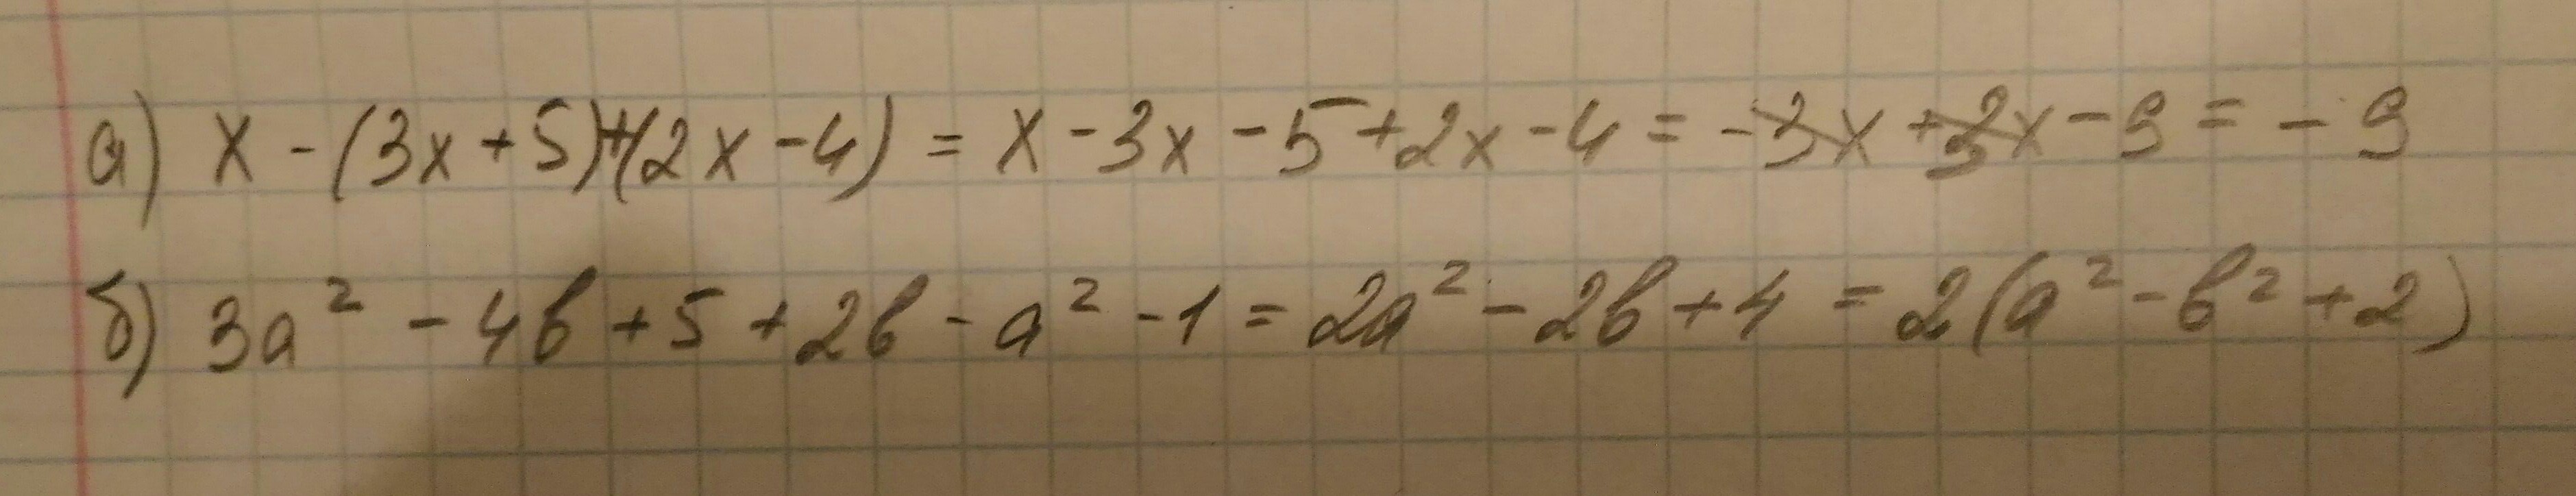 а) x - (3x + 5)+(2x - 4) = x - 3x - 5 + 2x - 4 = -3x + 3x - 9 = - 9
б) 3a² - 4b + 5 + 2b - a² - 1 = 2a² - 2b + 4 = 2(a² - b² + 2)